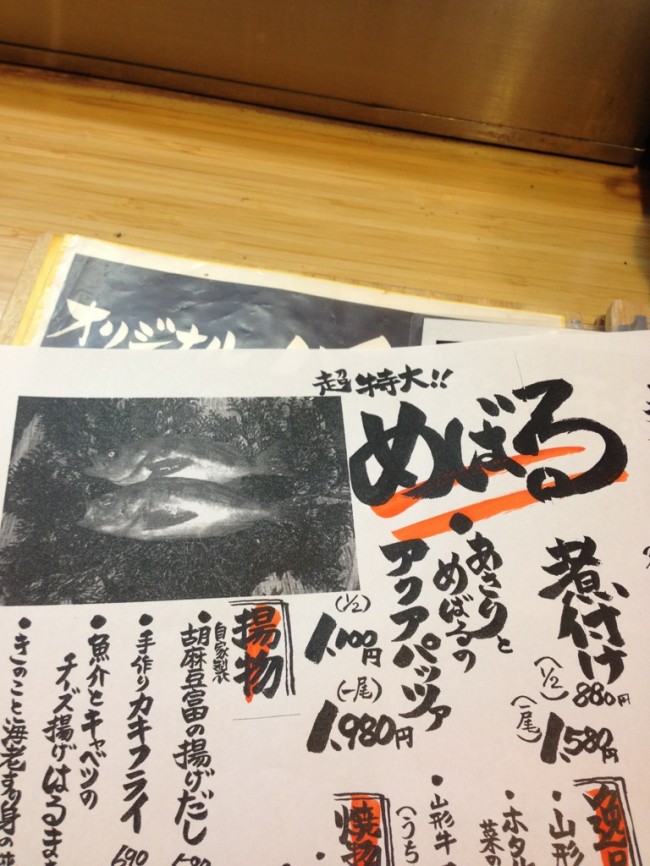 オリジナル
超特大!!
めばる
煮付け
(1/2) 880円
(一尾) 1,580円
・あさりと
めばるの
アクアパッツァ
(1/2) 1,100円
(一尾) 1,980円
揚物
・自家製
胡麻豆富の揚げだし
・手作りカキフライ
690
・魚介とキャベツの
チーズ揚げはるま
・きのこと海老すり身の
・山形
・ホタル
菜の
・山形牛
(うち
焼物